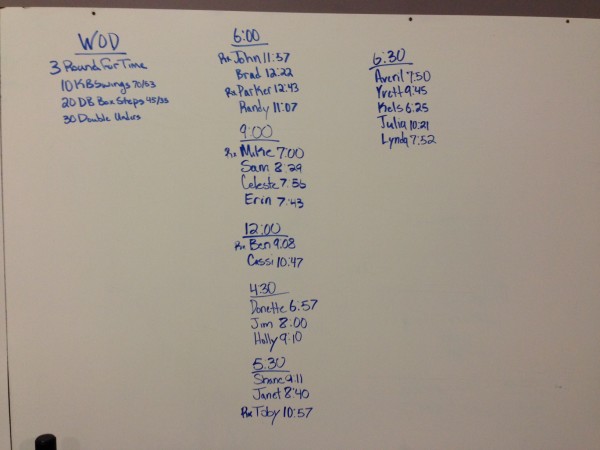 WOD
3 Rounds For Time
10 KB Swings 70/53
20 DB Box Steps 45/35
30 Double Unders
6:00
Rx John 11:57
Brad 12:22
Rx Parker 12:43
Randy 11:07
9:00
Rx Mike 7:00
Sam 8:29
Celeste 7:56
Erin 7:43
12:00
Rx Ben 9:08
Cassi 10:47
4:30
Donette 6:57
Jim 8:00
Holly 9:10
5:30
Shane 9:11
Janet 8:40
Rx Toby 10:57
6:30
Averil 7:50
Yvett 9:45
Kiels 6:25
Julia 10:21
Lynda 7:52